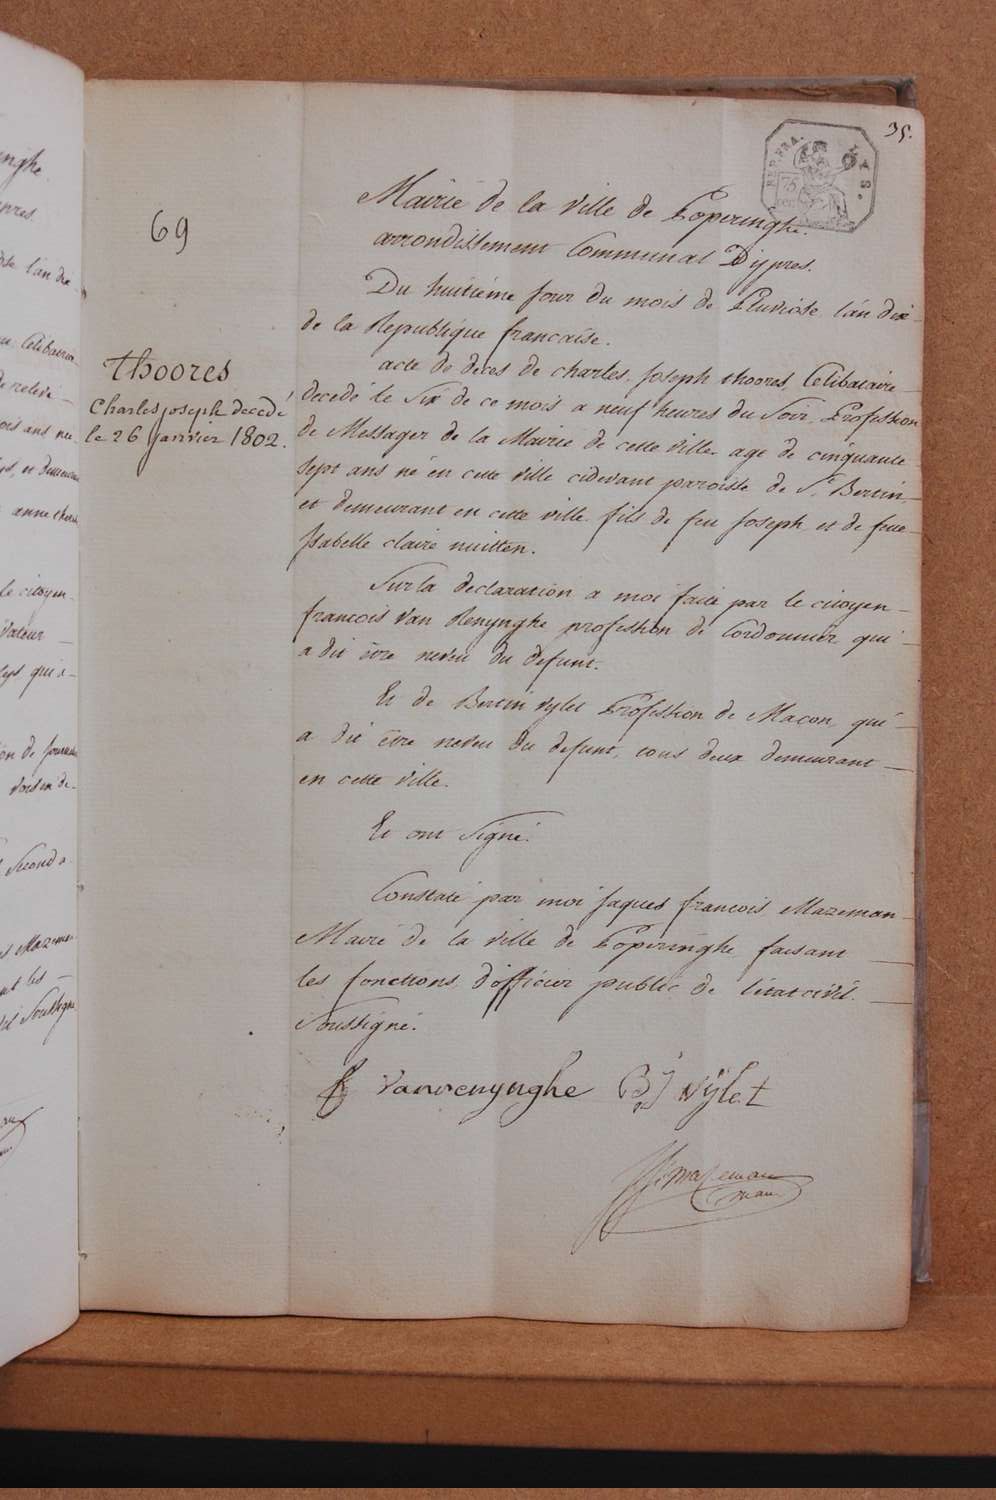 35.
REP. FRA.
LYS.
75
69
Mairie de la ville de Poperinghe.
arrondissement Communal D'ypres.
Du huitiéme jour du mois de Pluviôse l'an dix
de la Republique francaise.
acte de deces de charles joseph thoores Celibataire
decedé le Six de ce mois a neuf heures du Soir, Profession
de Messager de la Mairie de cette ville. age de cinquante
sept ans né en cette ville cidevant paroisse de St. Bertin
et demeurant en cette ville fils de feu Joseph et de feue
Isabelle claire nuitten.
thoores
Charles joseph decedé
le 26 janvier 1802.
Sur la declaration a moi faite par le citoyen
francois Van Renynghe profession de Cordonnier qui
a dit être neveu du defunt.
Et de Bertin vylet Profession de Macon, qui
a dit être neveu du defunt, tous deux demeurant
en cette ville.
Et ont Signé.
Constaté par moi Jaques francois Mazeman
Maire de la ville de Poperinghe faisant
les fonctions d'officier public de l'état civil.
Soussigné.
f vanrenynghe B J vÿlet